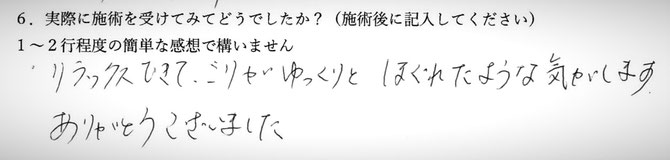 6．実際に施術を受けてみてどうでしたか？（施術後に記入してください）
1～2行程度の簡単な感想で構いません
リラックスできて、こりがゆっくりと ほぐれたような気がします
ありがとうございました